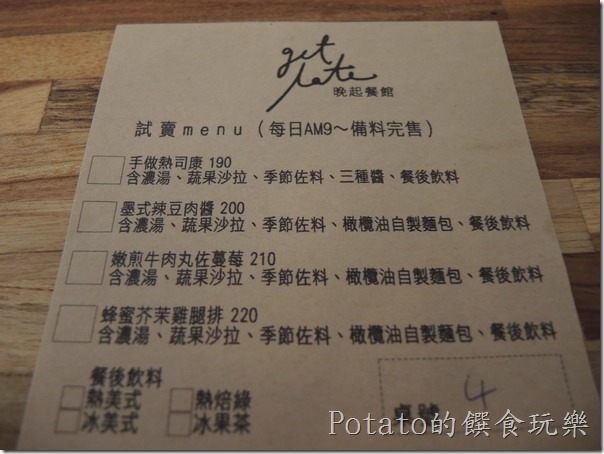 get
late
晚起餐館
試賣menu（每日AM9～備料完售）
手做熱司康 190
含濃湯、蔬果沙拉、季節佐料、三種醬、餐後飲料
墨式辣豆肉醬 200
含濃湯、蔬果沙拉、季節佐料、橄欖油自製麵包、餐後飲料
嫩煎牛肉丸佐蔓莓 210
含濃湯、蔬果沙拉、季節佐料、橄欖油自製麵包、餐後飲料
蜂蜜芥茉雞腿排 220
含濃湯、蔬果沙拉、季節佐料、橄欖油自製麵包、餐後飲料
餐後飲料
熱美式 熱焙綠
冰美式 冰果茶
桌號 4
Potato的饌食玩樂